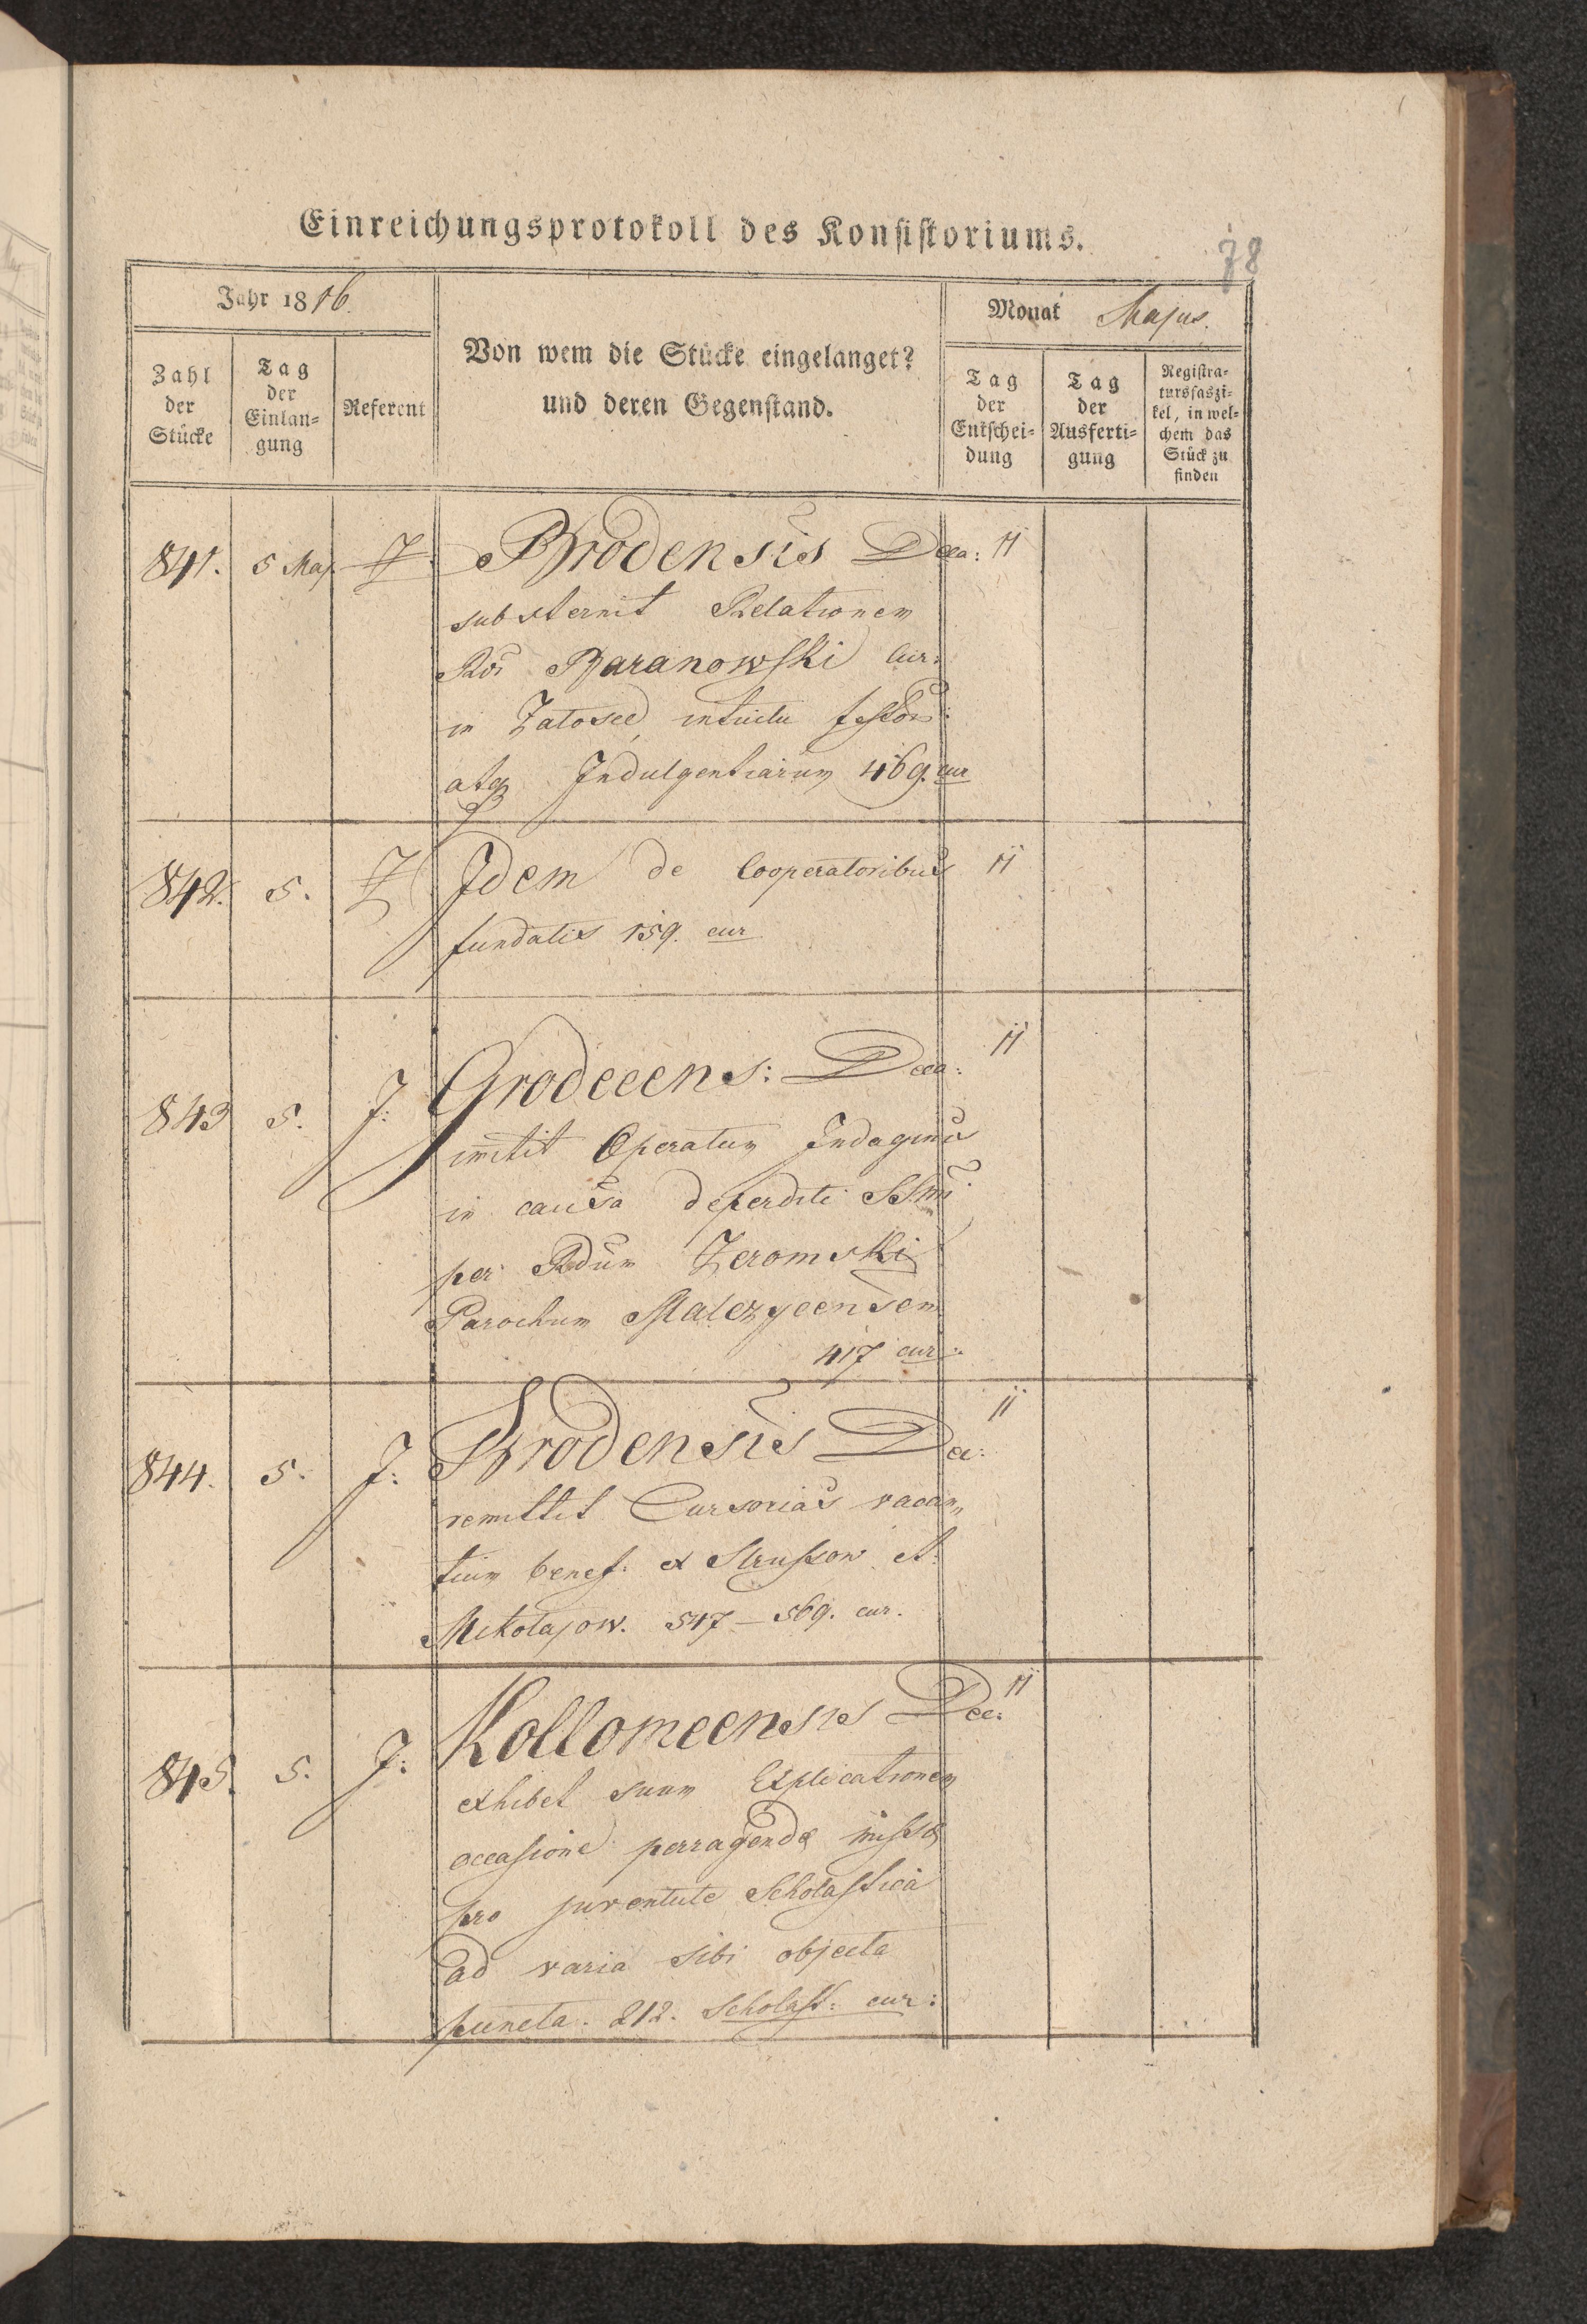 Einreichungsprotokoll des Konsistoriums.
78
Jahr 1816.
Monat Majus.
Zahl der Stücke
Tag der Einlan=gung
Referent
Von wem die Stücke eingelanget?
und deren Gegenstand.
Tag der Entschei=dung
Tag der Ausferti=gung
Registra=tursfaszi=kel, in wel=chem das Stück zu finden
841. 5 Maj. Brodensis Deca: 11
substernit Relationem
Rdi Baranowski Cur:
in Zalosce, intuitu festor:
atq Indulgentiarum 469. cur
842. 5. Idem de Cooperatoribus 11
fundatis 159. cur
843 5. J: Grodecens: Deca: 11
imitit Operatum Indaginis
in causa deperditi SSmi
per Rdum Zeromski
Parochum Malczycensem
417 cur:
844. 5. J: Brodensis Dec: 11
remittit Cursorias vacan„
tium benef: ex Strussow et
Mikolajow. 547 – 569. cur.
845. 5. J: Kollomeensis Dec: 11
exhibet suam Explicationem
occasione perragendae missae
pro juventute Scholastica
ad varia sibi objecta
puncta. 212. Scholast: cur: